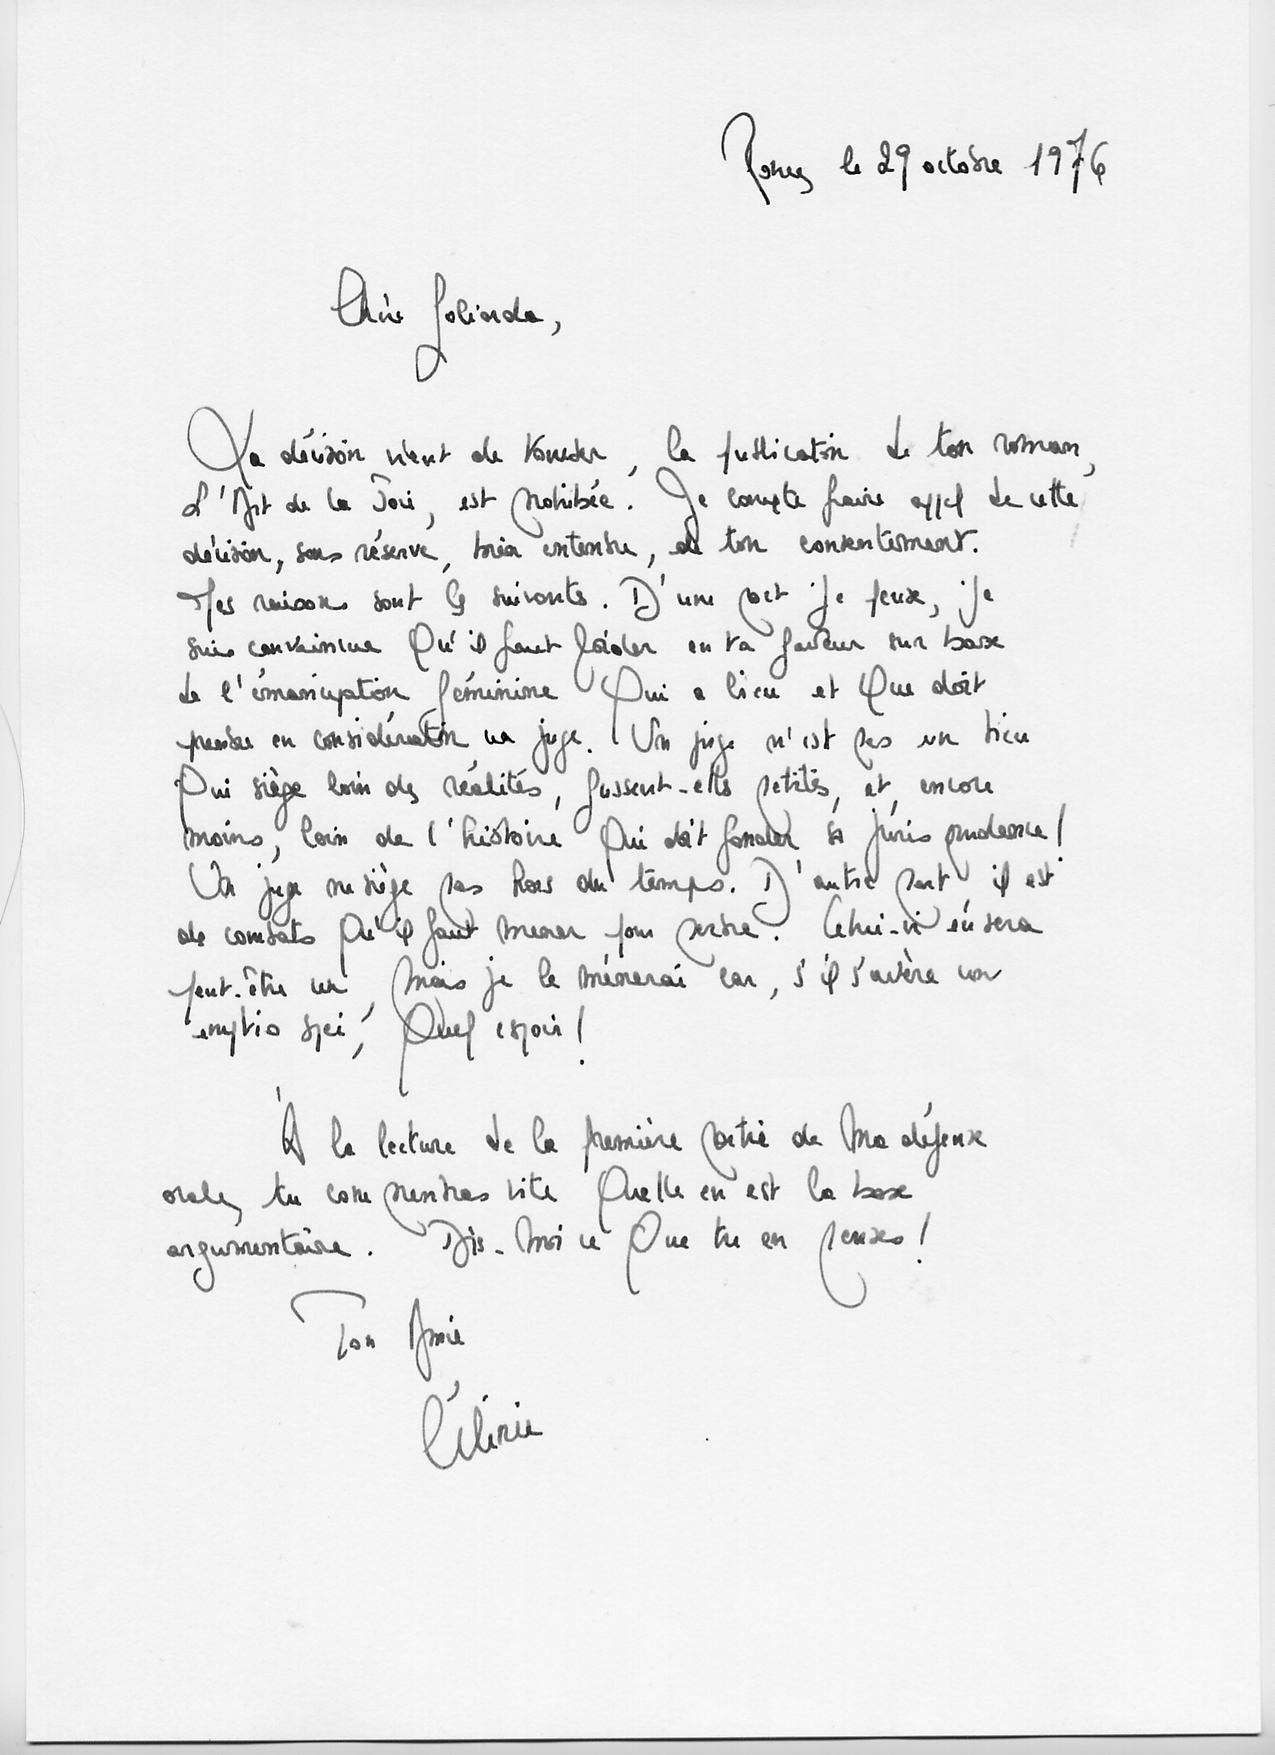 Rome, le 29 octobre 1976
Chère Goliarda,
La décision vient de tomber, la publication de ton roman,
L'Art de la Joie, est prohibée. Je compte faire appel de cette
décision, sous réserve, bien entendu, de ton consentement.
Mes raisons sont les suivantes. D'une part je pense, je
suis convaincue qu'il faut plaider en ta faveur sur base
de l'émancipation féminine qui a lieu et que doit
prendre en considération un juge. Un juge n'est pas un dieu
qui siège loin des réalités, fussent-elles petites, et, encore
moins, loin de l'histoire qui doit fonder sa jurisprudence !
Un juge ne siège pas hors du temps. D'autre part il est
de combats qu'il faut mener pour perdre. Celui-ci en sera
peut-être un, mais je le mènerai car, s'il s'avère un
emptio spei, quel espoir !
À la lecture de la première partie de ma défense
orale, tu comprendras vite quelle en est la base
argumentaire. Dis-moi ce que tu en penses !
Ton Amie